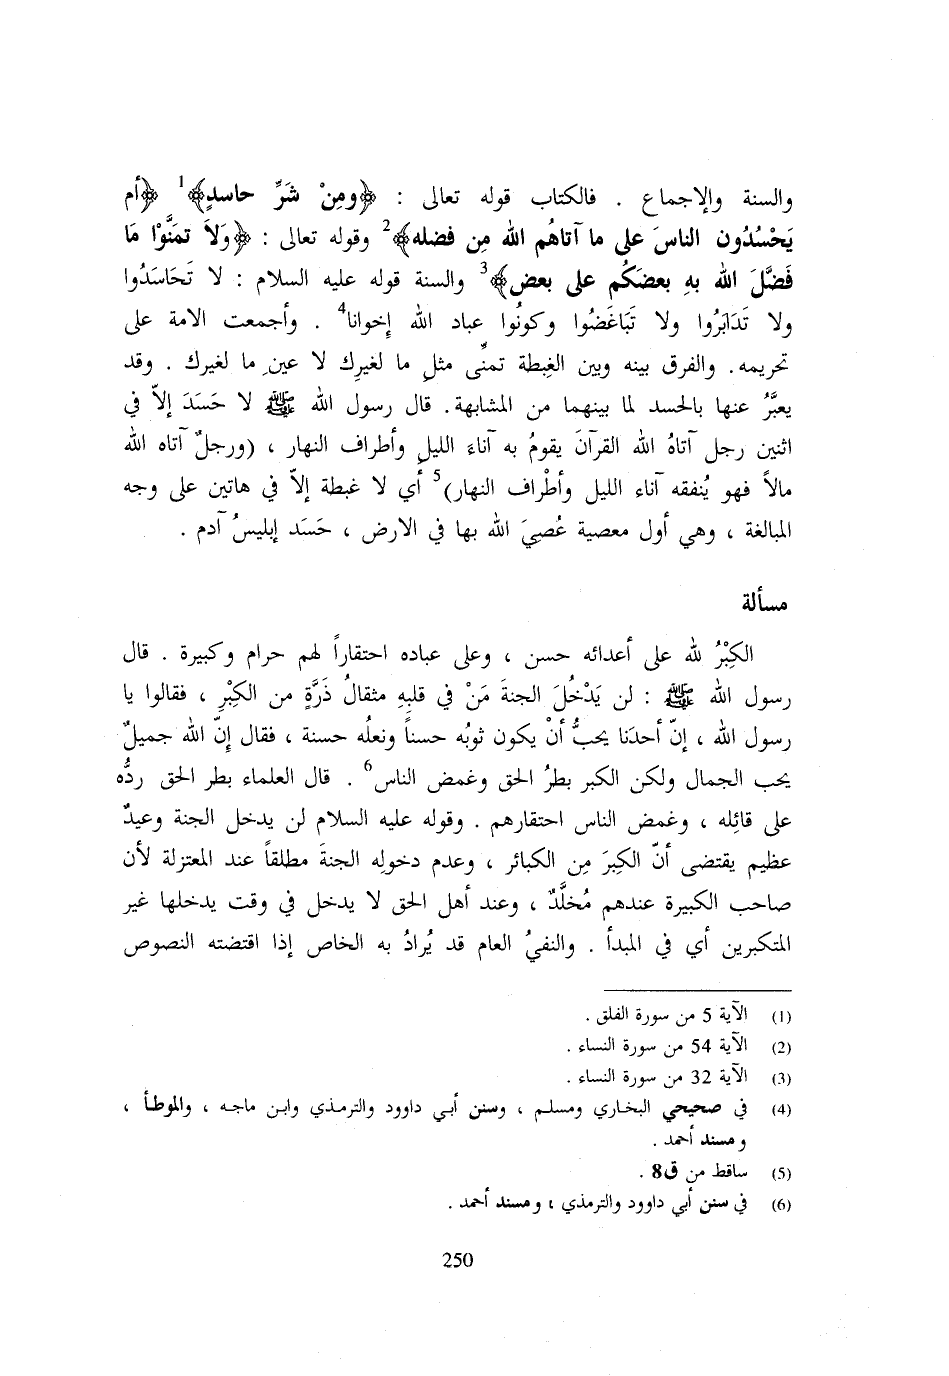 والسنة والإجماع . فالكتاب قوله تعالى : ﴿ومِنْ شَرِّ حاسدٍ﴾1 ﴿أم
يَحْسُدُون الناسَ على ما آتاهُم الله مِن فضله﴾2 وقوله تعالى : ﴿وَلاَ تمَنَّوْا مَا
فَضَّلَ الله بهِ بعضَكُم على بعض﴾3 والسنة قوله عليه السلام : لا تَحَاسَدُوا
ولا تَدَابَرُوا ولا تَبَاغَضُوا وكونُوا عباد الله إخوانا4 . وأجمعت الامة على
تحريمه. والفرق بينه وبين الغِبطة تمنّى مثلِ ما لغيرِك لا عينِ ما لغيرك . وقد
يعبَّرُ عنها بالحسد لما بينهما من المشابهة. قال رسول الله ﷺ لا حَسَدَ إلاّ في
اثنين رجل آتاهُ الله القرآنَ يقومُ به آناءَ الليلِ وأطراف النهار ، (ورجلٌ آتاه الله
مالاً فهو يُنفقه آناء الليل وأطْراف النهار)5 أي لا غبطة إلاّ في هاتين على وجه
المبالغة ، وهي أول معصية عُصِيَ الله بها في الارض ، حَسَد إبليسُ آدم .
مسألة
الكِبْرُ لله على أعدائه حسن ، وعلى عباده احتقاراً لهم حرام وكبيرة . قال
رسول الله ﷺ : لن يَدْخُلَ الجنةَ مَنْ في قلبِهِ مثقالُ ذَرَّةٍ من الكِبْرِ ، فقالوا يا
رسول الله ، إنّ أحدَنا يحبُّ أنْ يكون ثوبُه حسناً ونعلُه حسنة ، فقال إنّ الله جميلٌ
يحب الجمال ولكن الكبر بطرُ الحق وغمض الناس6 . قال العلماء بطر الحق ردُّه
على قائِله ، وغمض الناس احتقارهم . وقوله عليه السلام لن يدخل الجنة وعيدٌ
عظيم يقتضى أنّ الكِبرَ مِن الكبائر ، وعدم دخولِه الجنةَ مطلقاً عند المعتزلة لأن
صاحب الكبيرة عندهم مُخلَّدٌ ، وعند أهل الحق لا يدخل في وقت يدخلها غير
المتكبرين أي في المبدأ . والنفيُ العام قد يُرادُ به الخاص إذا اقتضته النصوص
(1) الآية 5 من سورة الفلق .
(2) الآية 54 من سورة النساء .
(3) الآية 32 من سورة النساء .
(4) في صحيحي البخاري ومسلم ، وسنن أبي داوود والترمذي وابن ماجه ، والموطأ ،
ومسند أحمد .
(5) ساقط من ق8 .
(6) في سنن أبي داوود والترمذي ، ومسند أحمد .
250